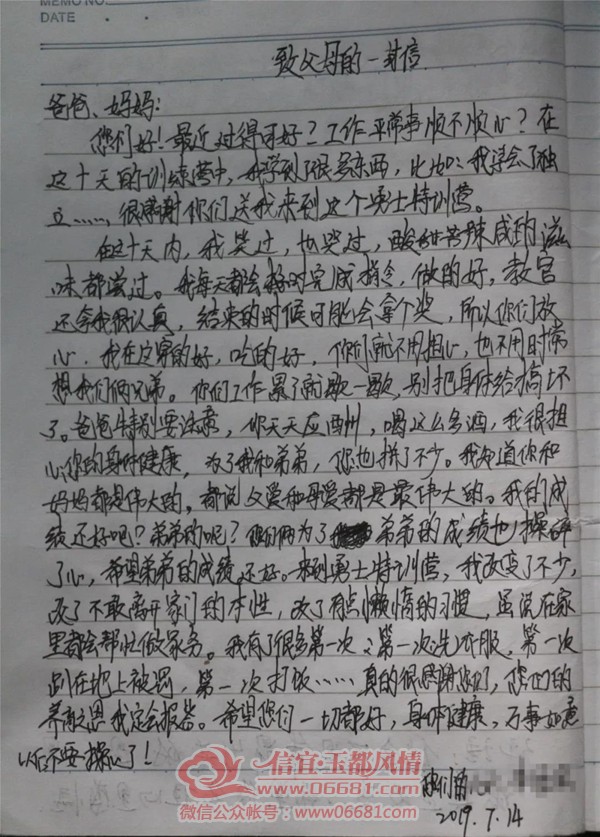 MEMO NO.
DATE
致父母的一封信
爸爸、妈妈:
您们好!最近过得可好?工作平常事顺不顺心?在
这十天的训练营中,我学到了很多东西,比如:我学会了独
立……,很感谢你们送我来到这个勇士特训营。
在这十天内,我笑过,也哭过,酸甜苦辣咸的滋
味都尝过。我每天都会按时完成指令,做的好,教官
还夸我很认真,结束的时候可能会拿个奖,所以你们放
心,我在这穿的好,吃的好,你们就不用担心,也不用时常
想我们俩兄弟。你们工作累了就歇一歇,别把身体给搞坏
了。爸爸特别要注意,你天天应酬,喝这么多酒,我很担
心你的身体健康,为了我和弟弟,您也拼了不少。我知道你和
妈妈都是伟大的,都说父爱和母爱都是最伟大的。我的成
绩还好吧?弟弟的呢?你们俩为了弟弟的成绩也操碎
了心,希望弟弟的成绩还好。来到勇士特训营,我改变了不少,
改了不敢离开家门的本性,改了有点懒惰的习惯,虽说在家
里都会帮忙做家务。我有了很多第一次:第一次洗衣服,第一次
趴在地上被罚,第一次打饭……真的很感谢您们,您们的
养育之恩我定会报答。希望您们一切都好,身体健康,万事如意
以后不要操心了!
我们的
2019.7.14
信宜·玉都风情
www.06681.com
微信公众帐号:www06681com